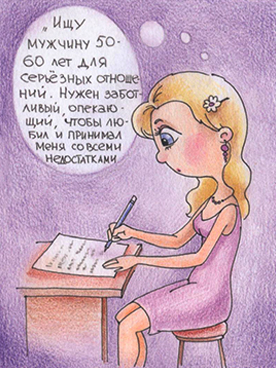 „Ищу
мужчину 50-
60 лет для
серьёзных отноше
ний. Нужен забот-
ливый, опекаю-
щий, чтобы лю-
бил и принимал
меня со всеми
недостатками